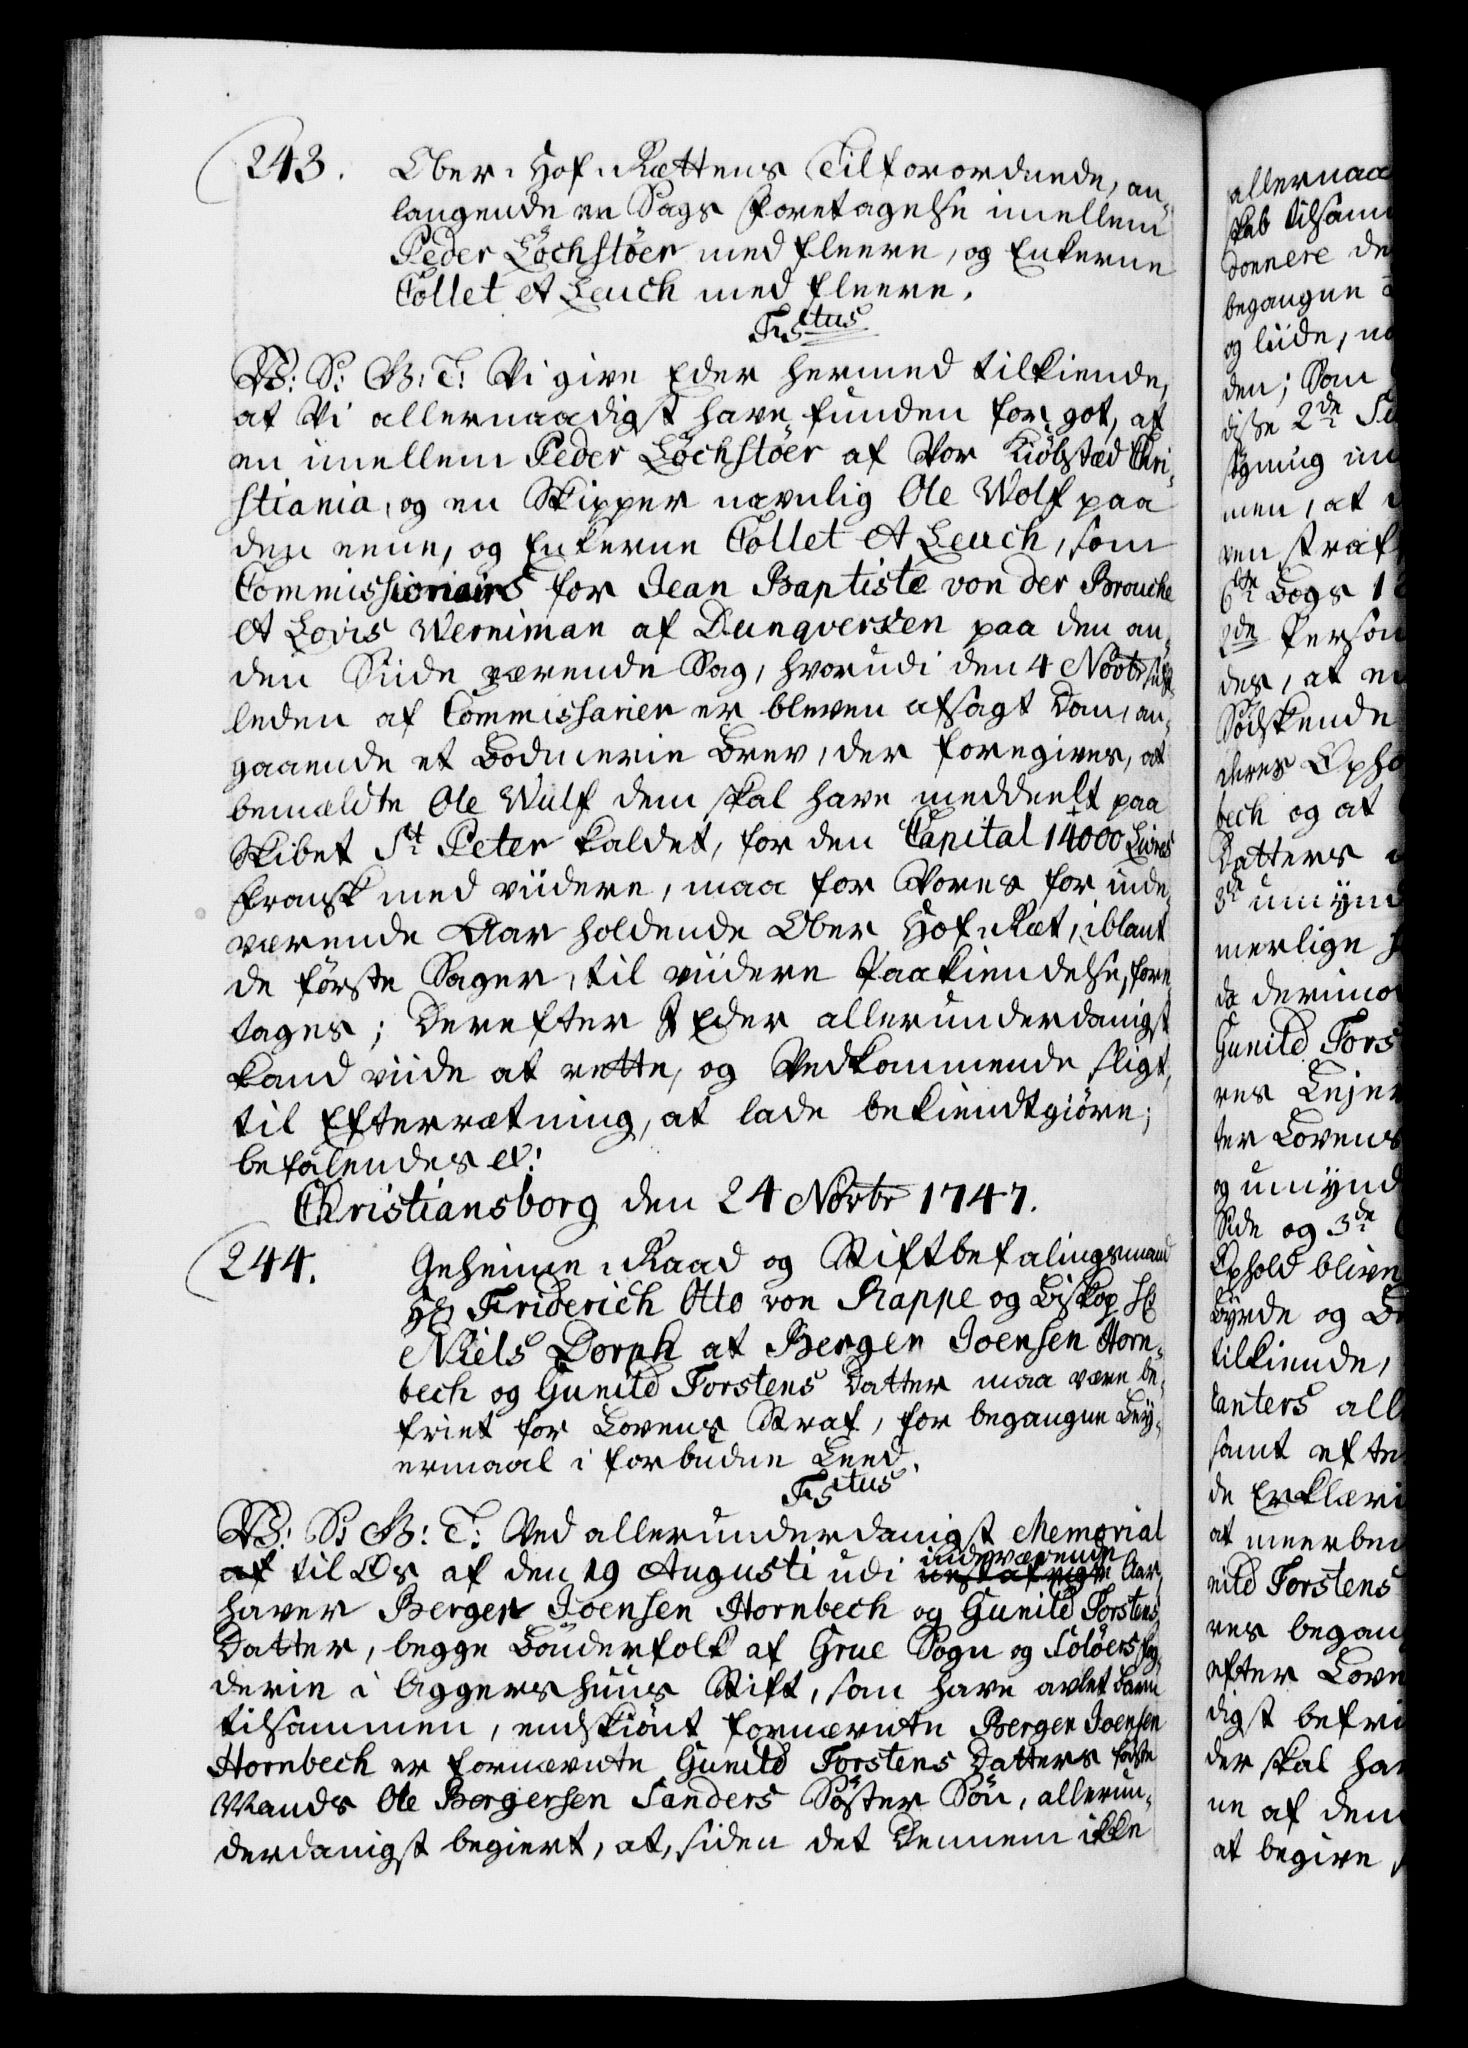 243. Ober-Hof-Rettens Tilforordnede, an-
langende en Sags foretagelse imellem
Peder Löchstöer med fleere, og Enkerne
Collet et Leuch med fleere.
F5tus
V: S: G: T: Vi give Eder hermed tilkiende,
at Vi allernaadigst have funden for got, at
en imellem Peder Löchstöer af Vor Kiöbstæd Chri-
stiania, og en Skipper navnlig Ole Wolf paa
den eene, og Enkerne Collet et Leuch, som
Commissionairs for Jean Baptiste von der Brouche
et Lovis Werniman af Dunqversen paa den an-
den Siide værende Sag, hvorudi den 4 Novbr sidst-
leden af Commissarier er bleven afsagt Dom, an-
gaaende et Bodmerie Brev, der foregives, at
bemældte Ole Wulf dem skal have meddeelt paa
Skibet St Peter kaldet, for den Capital 14000 Livres
fransk med viidere, maa for Vores for inde-
værende Aar holdende Ober Hof-Ret, iblant
de förste Sager, til viidere Paakiendelse, fore
tages; Derefter I Eder allerunderdanigst
kand viide at rette, og Vedkommende sligt,
til Efterretning, at lade bekiendtgiöre;
befalendes etc:
Christiansborg den 24 Novbr 1747.
244. Geheime-Raad og Stiftbefalingsmand
Hr Friderich Otto von Rappe og Biskop Hr
Niels Dorph at Bergen Joensen Horn-
bech og Gunild Torstens Datter maa være be-
friet for Lovens Straf, for begangne Ley-
ermaal i forbudne Leed.
F5tus
V: S: G: T: Ved allerunderdanigst Memorial
af til Os af den 19 Augusti udi indeværende Aar,
haver Bergen Joensen Hornbech og Gunild Torstens
Datter, begge Bönderfolk af Grue Sogn og Solöers fog-
derie i Aggershuus Stift, som have avlet Barn
tilsammen, endskiönt fornævnte Bergen Joensen
Hornbech er fornævnte Gunild Torstens Datters förste
Mands Ole Bergersen Sanders Söster Sön, allerun-
derdanigst begiert, at, siden det Dennem ikke
allernaa
skab tilsam
donnere de
begangne
og liide, n
den; Som
disse 2de
men, at
ven straf
6te Bogs 1
2de Person
des, at e
Södskende
deres Opho
bech og at
Datters
3de umynd
merlige
da derimo
Gunild Tors
res Lejer
ter Lovens
og umynd
Side og 3de
Ophold blive
Byrde og B
tilkiende,
canters all
samt efte
de Erklæri
at meerbe
nild Torstens
res began
efter Love
digst befri
der skal ha
ne af dem
at begive